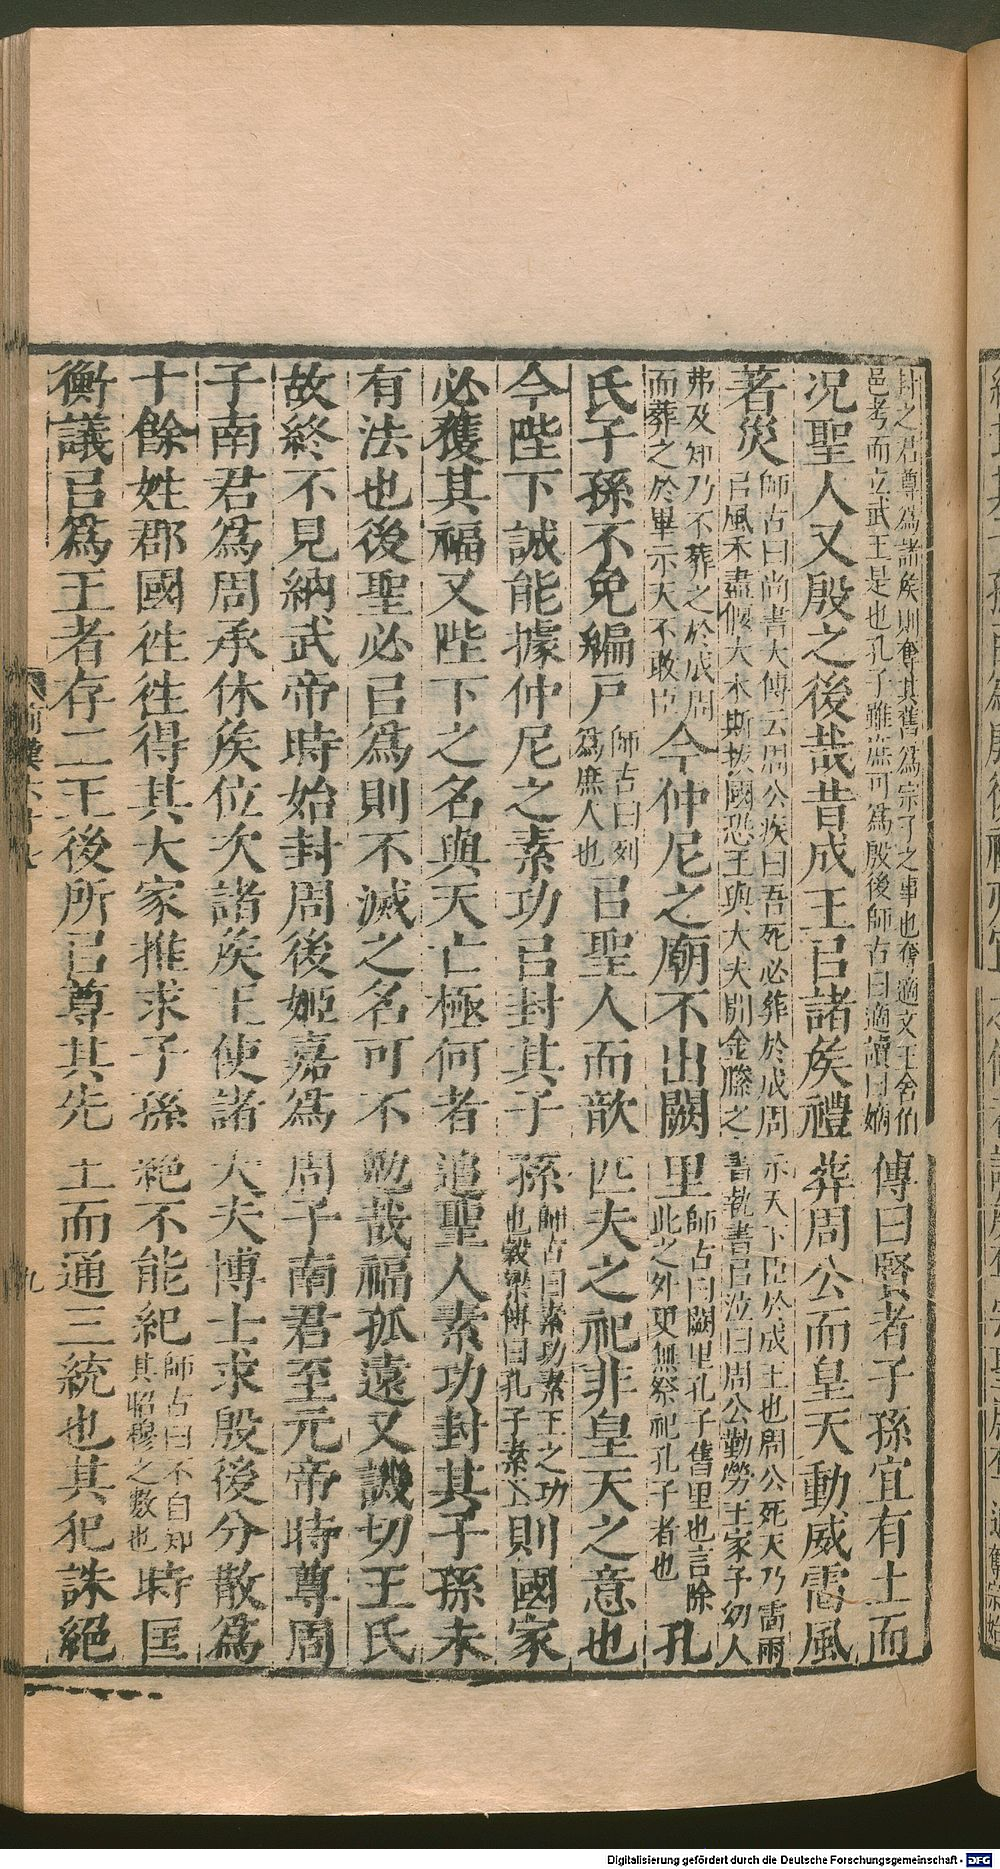 封之君尊爲諸矦則奪其舊爲宗子之事也奪適文王舍伯
邑考而立武王是也孔子雖庶可爲殷後師古曰適讀曰嫡
傳曰賢者子孫宜有土而
况聖人又殷之後哉昔成王㠯諸矦禮葬周公而皇天動威雷風
著災
師古曰尚書大傳云周公疾曰吾死必葬於成周示天下臣於成王也周公死天乃雷雨
㠯風禾盡偃大木斯拔國恐王與大夫開金縢之書執書㠯泣曰周公勤勞王家予幼人
弗及知乃不葬之於成周
而葬之於畢示天不敢臣
今仲尼之廟不出闕里
師古曰闕里孔子舊里也言除
此之外更無祭祀孔子者也
孔
氏子孫不免編戶
師古曰列
爲庶人也
㠯聖人而歆匹夫之祀非皇天之意也
今陛下誠能據仲尼之素功㠯封其子孫
師古曰素功素王之功
也穀梁傳曰孔子素王
則國家
必獲其福又陛下之名與天亡極何者追聖人素功封其子孫未
有法也後聖必㠯爲則不滅之名可不勉哉福孤遠又譏切王氏
故終不見納武帝時始封周後姬嘉爲周子南君至元帝時尊周
子南君爲周承休矦位次諸矦王使諸大夫博士求殷後分散爲
十餘姓郡國徃徃得其大家推求子孫絕不能紀
師古曰不自知
其昭穆之數也
時匡
衡議㠯爲王者存二王後所㠯尊其先王而通三統也其犯誅絕
前漢六十七
九
Digitalisierung gefördert durch die Deutsche Forschungsgemeinschaft - DFG